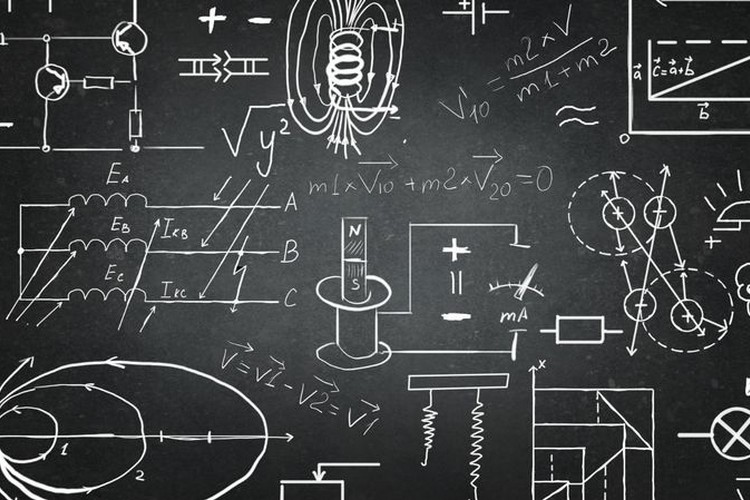 + -
V₁₀ = m2 × V / m1 + m2
a⃗ c⃗=a⃗+b⃗
b⃗
√y²
m1×V⃗₁₀ + m2×V⃗₂₀ = 0
E_A A
E_B I_KB B
E_C I_KC C
N
S
+
=
-
mA
+ +
+ +
+
V⃗=V⃗1-V⃗2=V⃗1
1
2
x